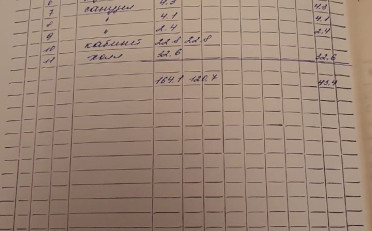 7 санузел 4.3 4.3
8 " 4.1 4.1
9 " 2.4 2.4
10 кабинет 22.8 22.8
11 холл 32.6 32.6
164.1 120.7 43.4